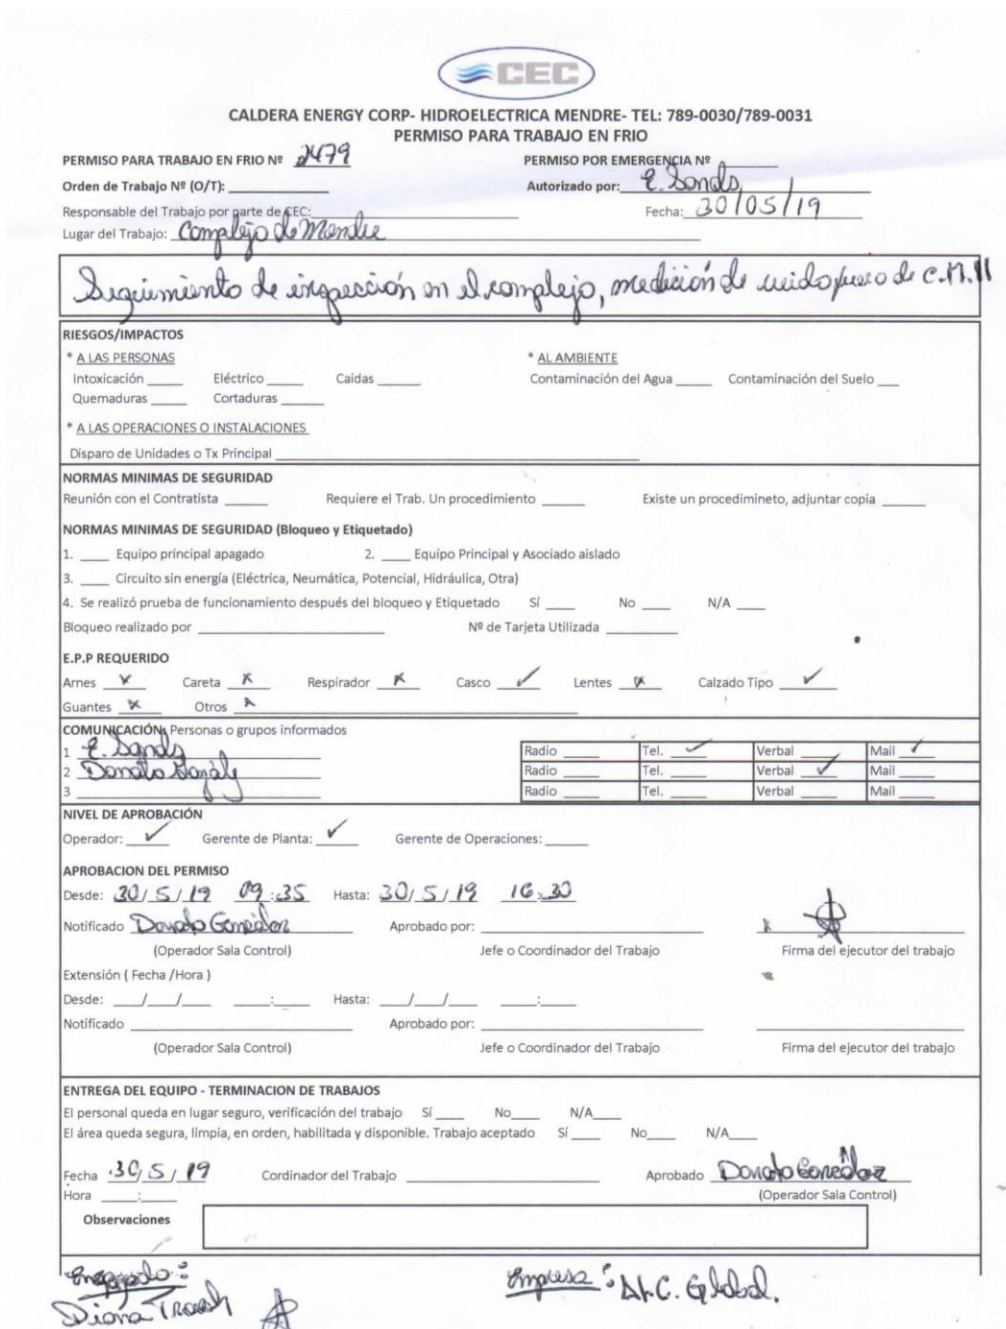 CEC
CALDERA ENERGY CORP- HIDROELECTRICA MENDRE- TEL: 789-0030/789-0031
PERMISO PARA TRABAJO EN FRIO
PERMISO PARA TRABAJO EN FRIO Nº 2479 PERMISO POR EMERGENCIA Nº
Orden de Trabajo Nº (O/T): Autorizado por: E. Sands
Responsable del Trabajo por parte de CEC: Fecha: 30/05/19
Lugar del Trabajo: Complejo de Mendre
Seguimiento de inspección en el complejo, medición de de C.M.II
RIESGOS/IMPACTOS
* A LAS PERSONAS * AL AMBIENTE
Intoxicación Eléctrico Caidas Contaminación del Agua Contaminación del Suelo
Quemaduras Cortaduras
* A LAS OPERACIONES O INSTALACIONES
Disparo de Unidades o Tx Principal
NORMAS MINIMAS DE SEGURIDAD
Reunión con el Contratista Requiere el Trab. Un procedimiento Existe un procedimineto, adjuntar copia
NORMAS MINIMAS DE SEGURIDAD (Bloqueo y Etiquetado)
1. Equipo principal apagado 2. Equipo Principal y Asociado aislado
3. Circuito sin energía (Eléctrica, Neumática, Potencial, Hidráulica, Otra)
4. Se realizó prueba de funcionamiento después del bloqueo y Etiquetado Sí No N/A
Bloqueo realizado por Nº de Tarjeta Utilizada
E.P.P REQUERIDO
Arnes x Careta x Respirador x Casco ✓ Lentes x Calzado Tipo ✓
Guantes x Otros x
COMUNICACIÓN: Personas o grupos informados
1 E. Sands Radio Tel. ✓ Verbal Mail ✓
2 Donato Radio Tel. Verbal ✓ Mail
3 Radio Tel. Verbal Mail
NIVEL DE APROBACIÓN
Operador: ✓ Gerente de Planta: ✓ Gerente de Operaciones:
APROBACION DEL PERMISO
Desde: 30/5/19 09:35 Hasta: 30/5/19 16:30
Notificado Donato González Aprobado por:
(Operador Sala Control) Jefe o Coordinador del Trabajo Firma del ejecutor del trabajo
Extensión ( Fecha /Hora )
Desde: __/__/__ __:__ Hasta: __/__/__ __:__
Notificado Aprobado por:
(Operador Sala Control) Jefe o Coordinador del Trabajo Firma del ejecutor del trabajo
ENTREGA DEL EQUIPO - TERMINACION DE TRABAJOS
El personal queda en lugar seguro, verificación del trabajo Sí No N/A
El área queda segura, limpia, en orden, habilitada y disponible. Trabajo aceptado Sí No N/A
Fecha 30/5/19 Cordinador del Trabajo Aprobado Donato González
Hora __:__ (Operador Sala Control)
Observaciones
Empresa: Global.
Diana